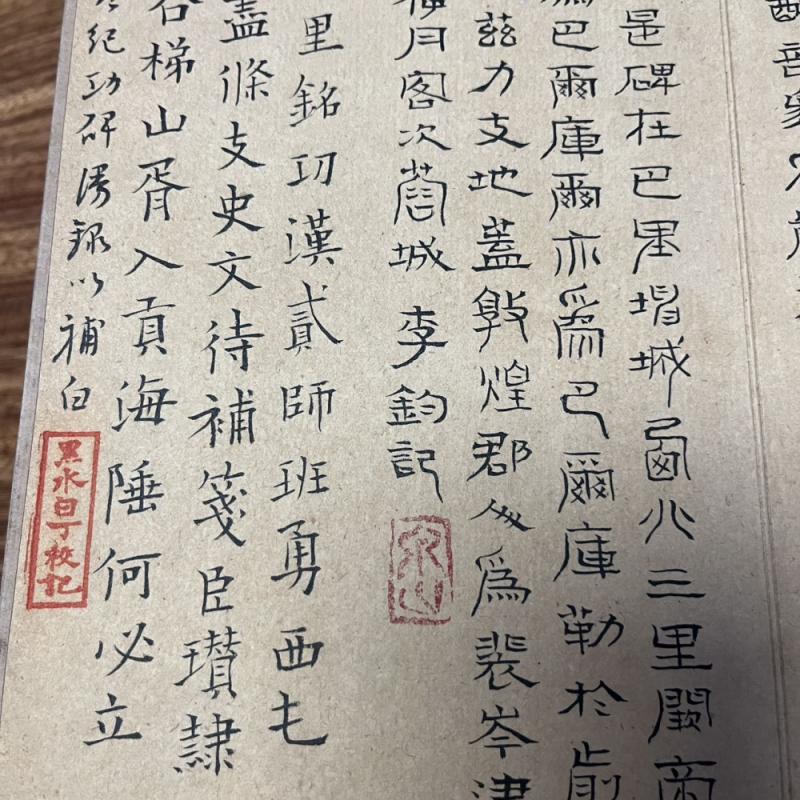 是碑在巴里坤城西北三里關帝
爲巴爾庫爾亦爲巴爾庫勒於前
茲力支地蓋敦煌郡人爲裴岑建
梅月客次蓉城 李鈞記
里銘功漢貳師班勇西屯
盖條支史文待補箋臣瓚隸
谷梯山胥入貢海陲何必立
岑紀功碑漫録以補白
黑水白丁校記